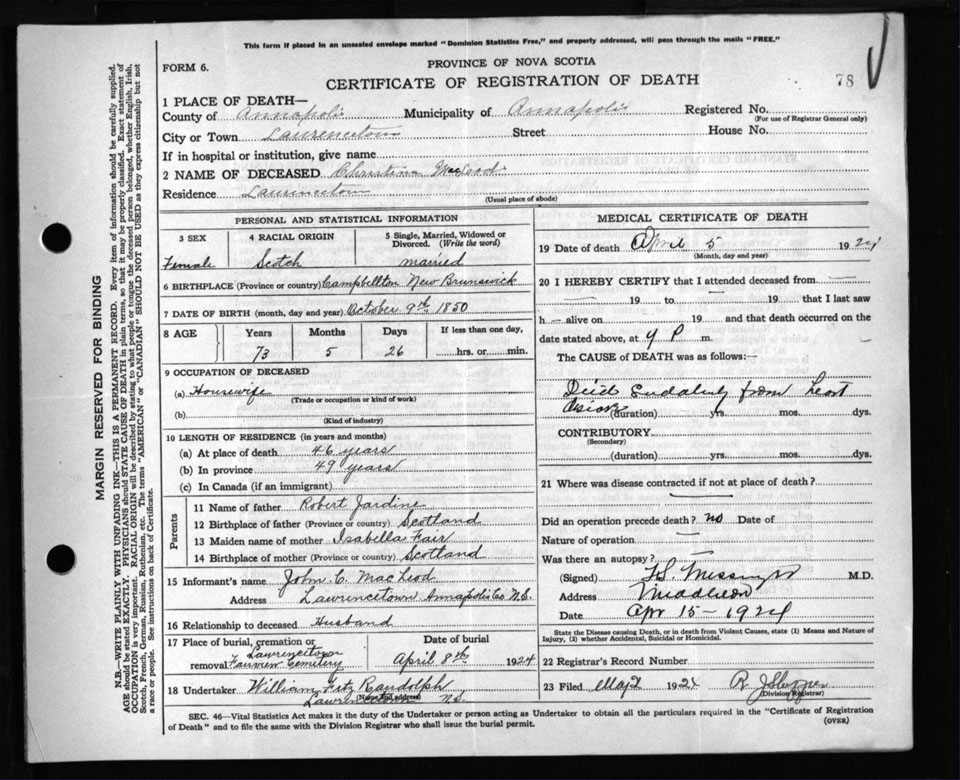 This form if placed in an unsealed envelope marked "Dominion Statistics Free," and properly addressed, will pass through the mails "FREE."
FORM 6.
PROVINCE OF NOVA SCOTIA
CERTIFICATE OF REGISTRATION OF DEATH
78
1 PLACE OF DEATH—
County of Annapolis Municipality of Annapolis Registered No.
(For use of Registrar General only)
City or Town Laurencetown Street House No.
If in hospital or institution, give name
2 NAME OF DECEASED Christina MacLeod
Residence Laurencetown
(Usual place of abode)
PERSONAL AND STATISTICAL INFORMATION
3 SEX 4 RACIAL ORIGIN 5 Single, Married, Widowed or Divorced. (Write the word)
Female Scotch married
6 BIRTHPLACE (Province or country) Campbellton New Brunswick
7 DATE OF BIRTH (month, day and year) October 9th 1850
8 AGE Years Months Days If less than one day,
73 5 26 hrs. or min.
9 OCCUPATION OF DECEASED
(a) Housewife
(Trade or occupation or kind of work)
(b)
(Kind of industry)
10 LENGTH OF RESIDENCE (in years and months)
(a) At place of death 46 years
(b) In province 49 years
(c) In Canada (if an immigrant)
Parents
11 Name of father Robert Jardine
12 Birthplace of father (Province or country) Scotland
13 Maiden name of mother Isabella Fair
14 Birthplace of mother (Province or country) Scotland
15 Informant's name John C. MacLeod
Address Lawrencetown Annapolis Co N.S.
16 Relationship to deceased Husband
17 Place of burial, cremation or removal Lawrencetown Fairview Cemetery
Date of burial
April 8th 1924
18 Undertaker William Fitz Randolph
Lawrencetown N.S.
MEDICAL CERTIFICATE OF DEATH
19 Date of death April 5 1924
(Month, day and year)
20 I HEREBY CERTIFY that I attended deceased from
19 to 19 that I last saw
h — alive on 19 and that death occurred on the
date stated above, at 4 P m.
The CAUSE of DEATH was as follows:—
Died Suddenly from Heart
(duration) yrs. mos. dys.
CONTRIBUTORY
(Secondary)
(duration) yrs. mos. dys.
21 Where was disease contracted if not at place of death?
Did an operation precede death? no Date of
Nature of operation
Was there an autopsy?
(Signed) M.D.
Address Middleton
Date Apr 15 - 1924
State the Disease causing Death, or in death from Violent Causes, state (1) Means and Nature of Injury, (2) whether Accidental, Suicidal or Homicidal.
22 Registrar's Record Number
23 Filed May 2 1924
(Division Registrar)
SEC. 46—Vital Statistics Act makes it the duty of the Undertaker or person acting as Undertaker to obtain all the particulars required in the "Certificate of Registration
of Death" and to file the same with the Division Registrar who shall issue the burial permit.
(OVER)
MARGIN RESERVED FOR BINDING
N.B.—WRITE PLAINLY WITH UNFADING INK—THIS IS A PERMANENT RECORD. Every item of information should be carefully supplied.
AGE should be stated EXACTLY. PHYSICIANS should STATE CAUSE OF DEATH in plain terms, so that it may be properly classified. Exact statement of
OCCUPATION is very important. RACIAL ORIGIN will be described by stating to what people or tongue the deceased person belonged, whether English, Irish,
Scotch, French, German, Russian, Ruthenian, etc. The terms "AMERICAN" or "CANADIAN" SHOULD NOT BE USED as they express citizenship but not
a race or people. See instructions on back of Certificate.